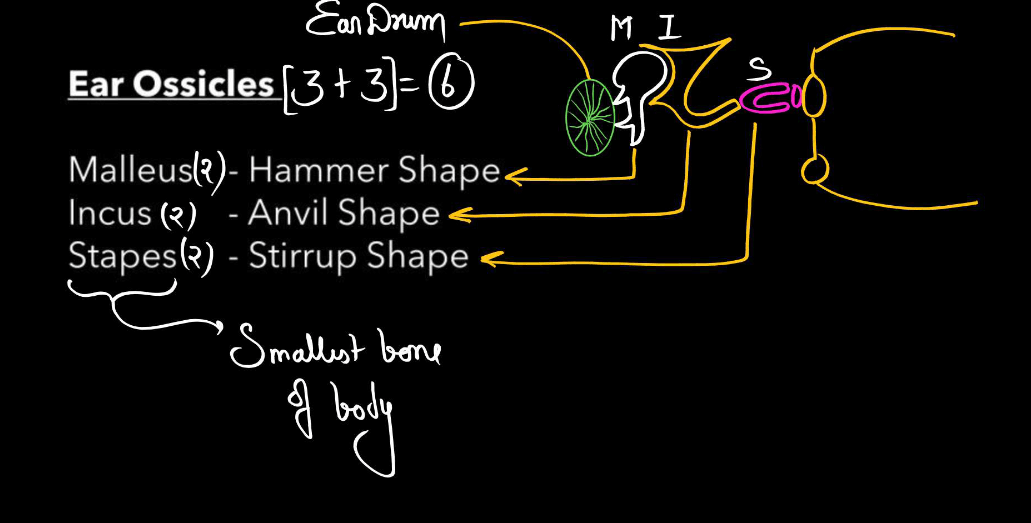 Ear Drum
M I
S
Ear Ossicles [3+3]=6
Malleus(२)- Hammer Shape
Incus (२) - Anvil Shape
Stapes(२) - Stirrup Shape
Smallest bone
of body